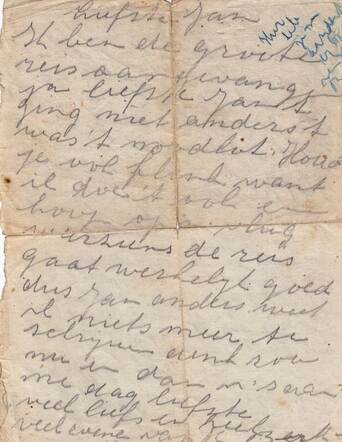 Liefste Jan
Ik ben de groote
reis aangevangt
ja liefste Jan 't
ging niet anders 't
was 't noodlot. Houd
je vol flink want
ik doe 't ook en
hoop op n vlug
weerziens de reis
gaat werkelijk goed
dus Jan anders weet
ik niets meer te
schrijven denk zoo
nu en dan n's aan
me dag liefste
veel liefs en
veel van